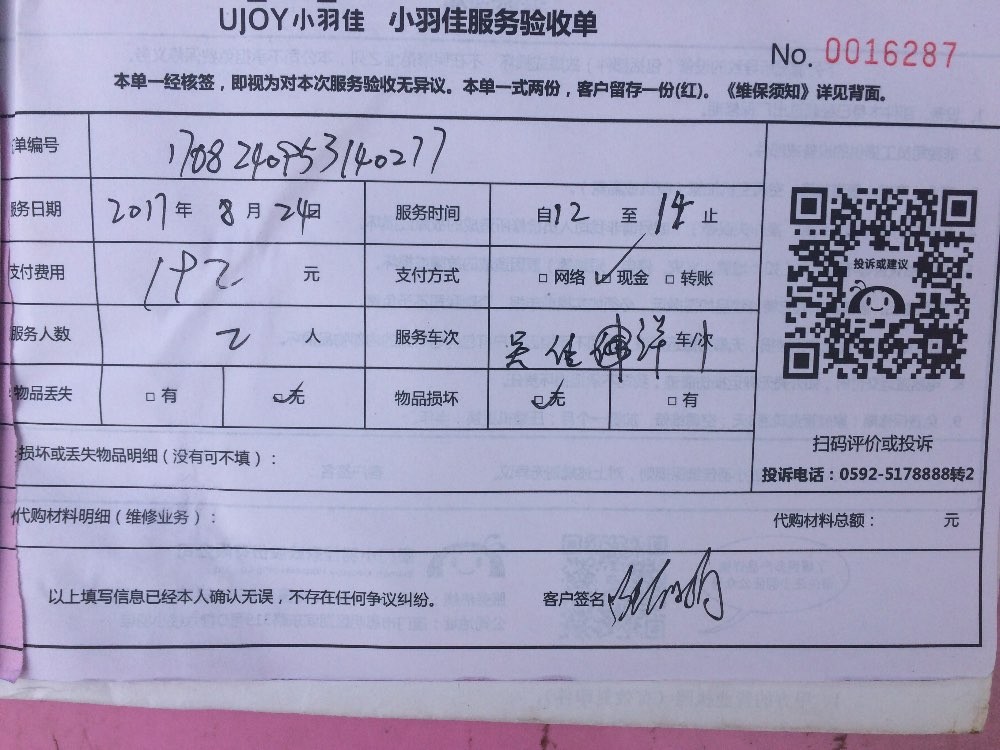 UJOY小羽佳 小羽佳服务验收单
No. 0016287
本单一经核签，即视为对本次服务验收无异议。本单一式两份，客户留存一份(红)。《维保须知》详见背面。
单编号 1708240953140277
服务日期 2017 年 8 月 24 日 服务时间 自12 至 14 止
支付费用 192 元 支付方式 □ 网络 ☑ 现金 □ 转账
服务人数 2 人 服务车次 吴佳 洋 车/次
物品丢失 □ 有 ☑ 无 物品损坏 ☑ 无 □ 有
投诉或建议
扫码评价或投诉
投诉电话：0592-5178888转2
损坏或丢失物品明细（没有可不填）：
代购材料明细（维修业务）： 代购材料总额： 元
以上填写信息已经本人确认无误，不存在任何争议纠纷。 客户签名